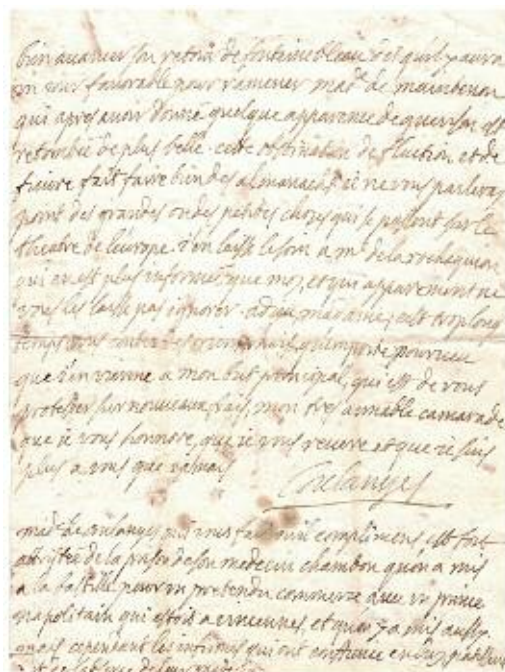 bien avancer son retour de fontainebleau dès quil y aura
un jour favorable pour ramener mad.e de maintenon
qui apres avoir donné quelque apparence de guerison est
retombée de plus belle. cette obstination de fluction et de
fievre fait faire bien des almanachs. ie ne vous parleray
point des grandes ou des petites choses qui se passent sur le
theatre de leurope. i'en laisse le soin a mr de la rocheguion
qui en est plus informé que moy, et qui apparement ne
vous les laisse pas ignorer. adieu madame, cest trop long
temps vous conter des quimporte pourveu
que i'en vienne a mon but principal, qui est de vous
protester sur nouveaux frais, mon tres aimable camarade
que ie vous honnore, que ie vous revere et que ie suis
plus a vous que iamais
Coulanges
mad.e de coulanges qui vous fait mil complimens, est fort
attristée de la prison de son medecin chambon quon a mis
a la bastille pour un pretendu commerce avec un prince
napolitain qui estoit a vincennes, et quon y a mis aussy.
mais cependant les intimes qui ont confience en luy